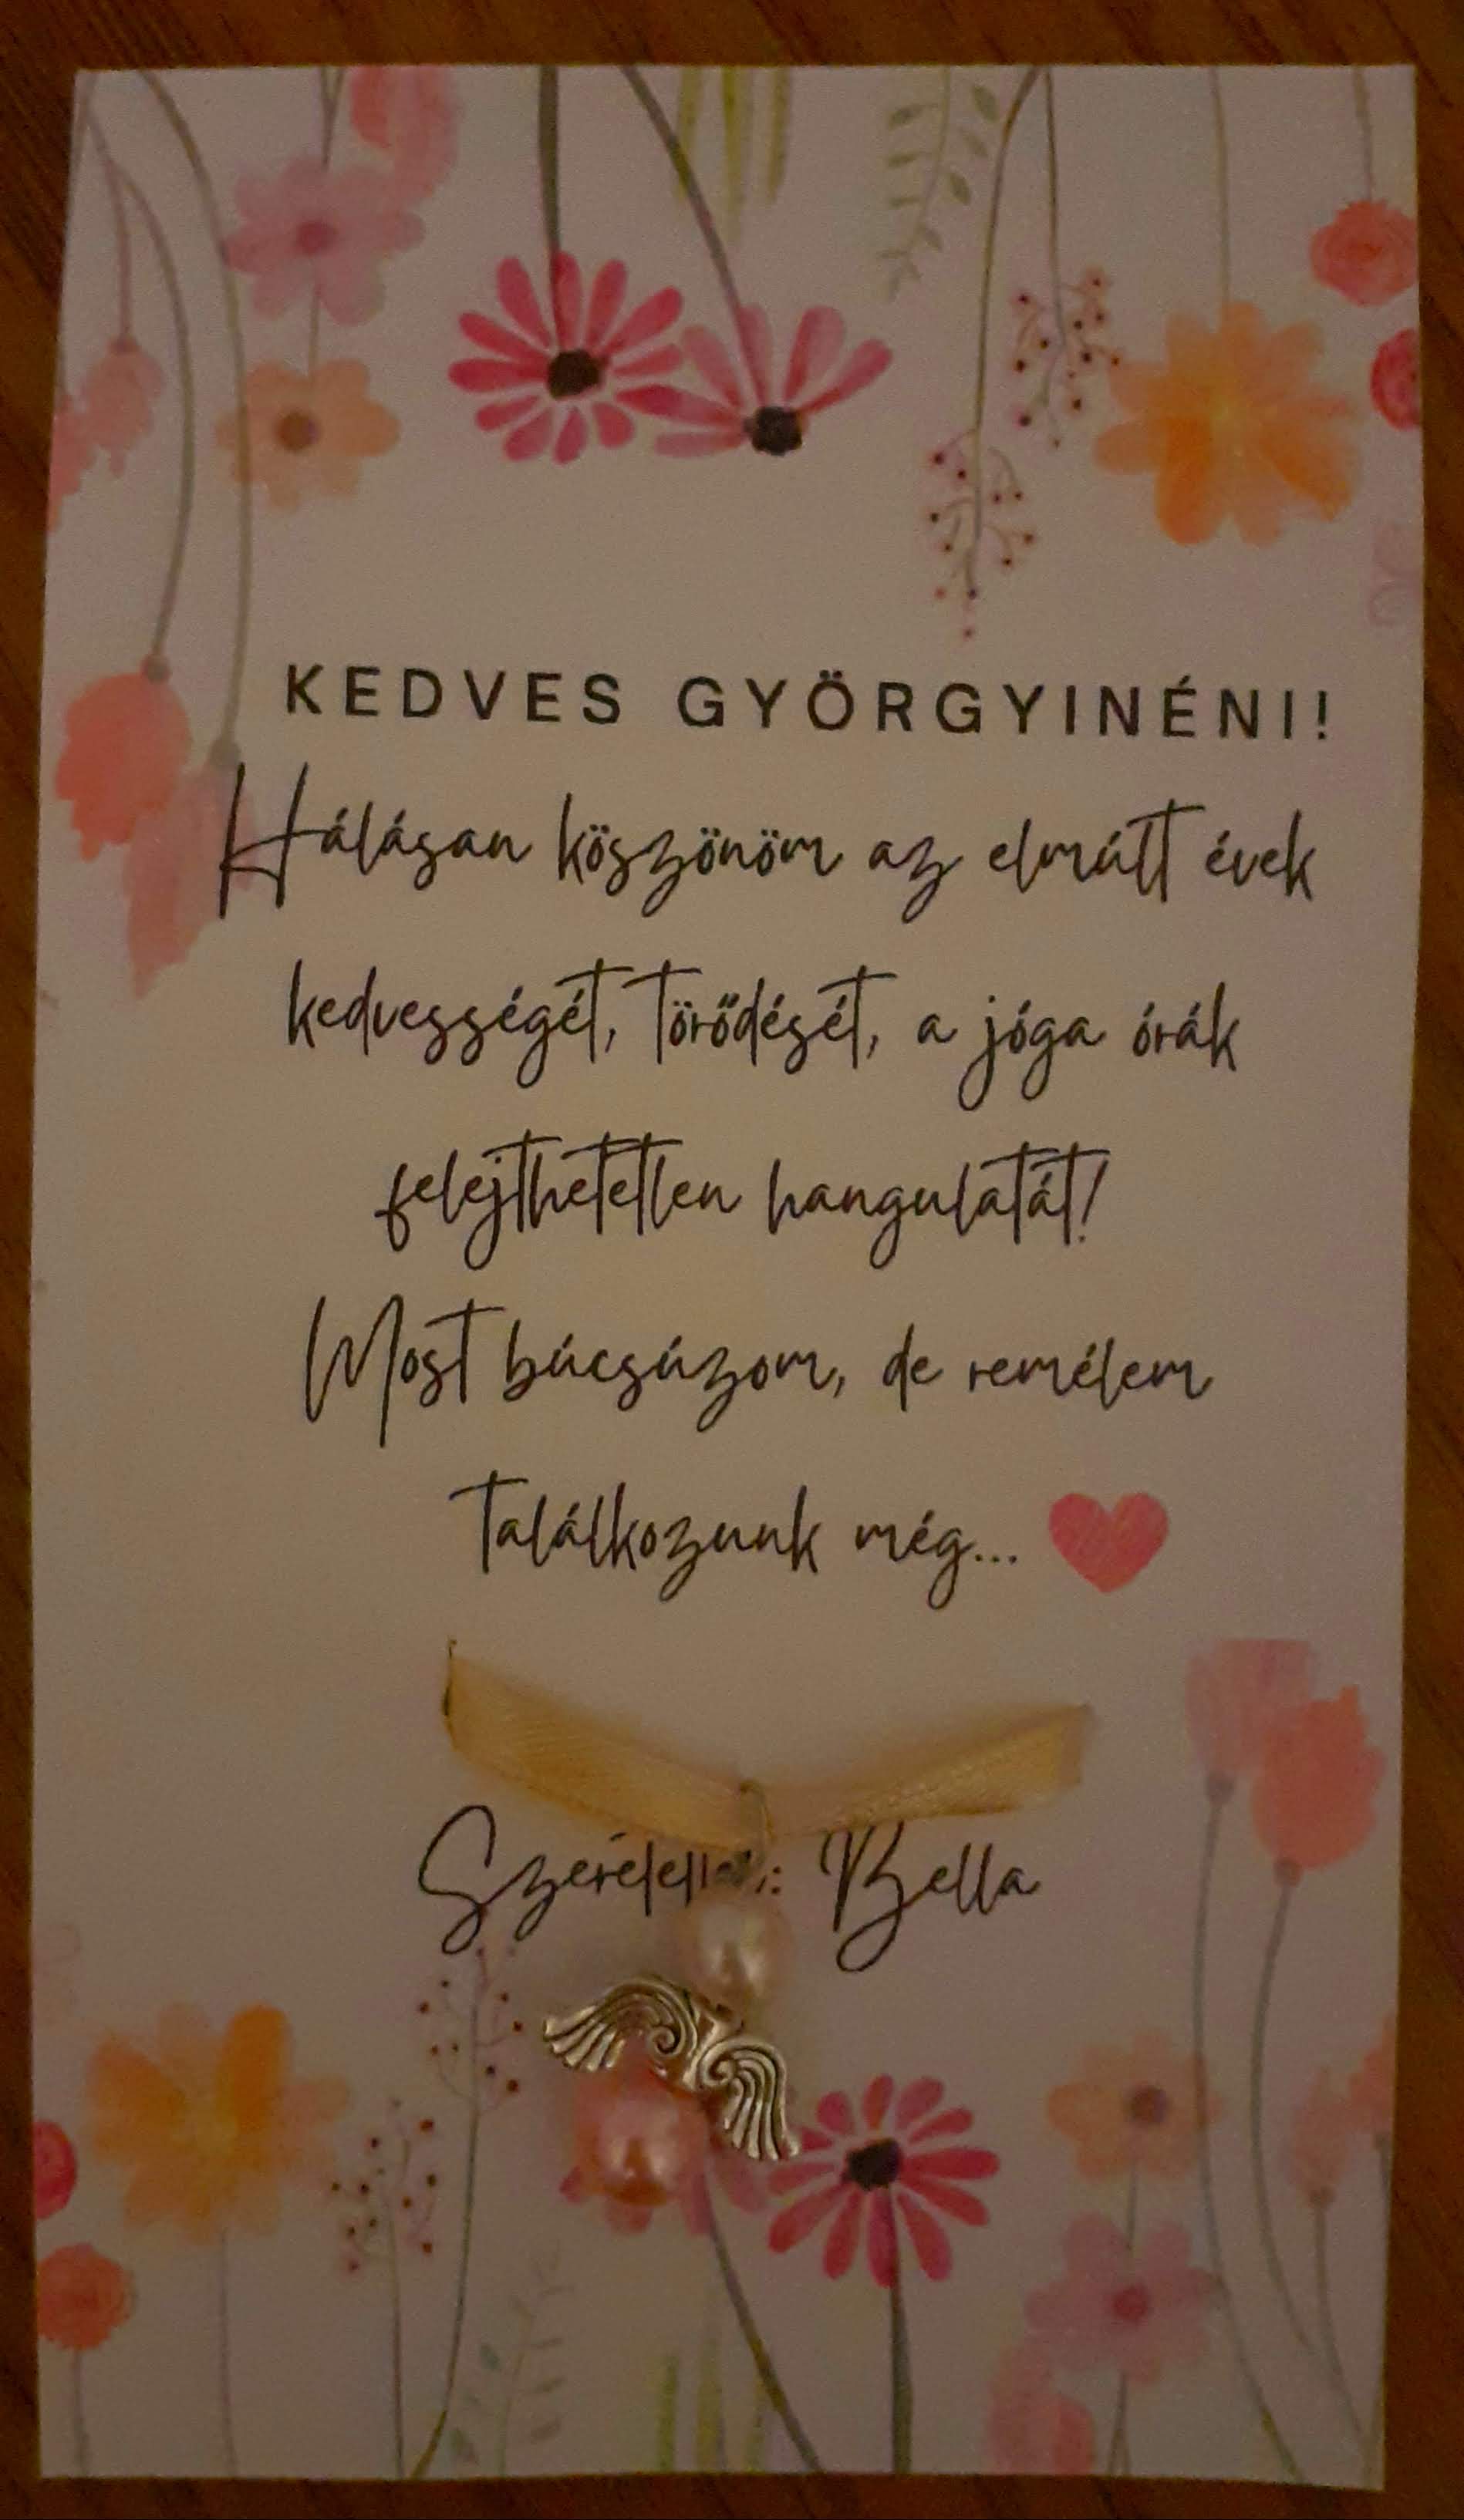 KEDVES GYÖRGYINÉNI!
Hálásan köszönöm az elmúlt évek
kedvességét, törődését, a jóga órák
felejthetetlen hangulatát!
Most búcsúzom, de remélem
találkozunk még...
Bella